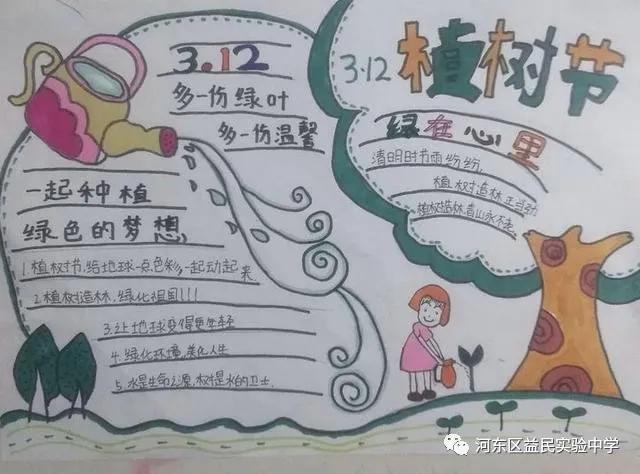 3.12
多一份绿叶
多一份温馨
一起种植
绿色的梦想,
1.植树节,给地球一点色彩,一起动起来
2.植树造林,绿化祖国!!!
3.让地球变得更年轻
4.绿化环境,美化人生
5.水是生命之源,树是水的卫士.
3.12 植树节
绿在心里
清明时节雨纷纷,
植树造林正当
植树造林,青山永不老
河东区益民实验中学